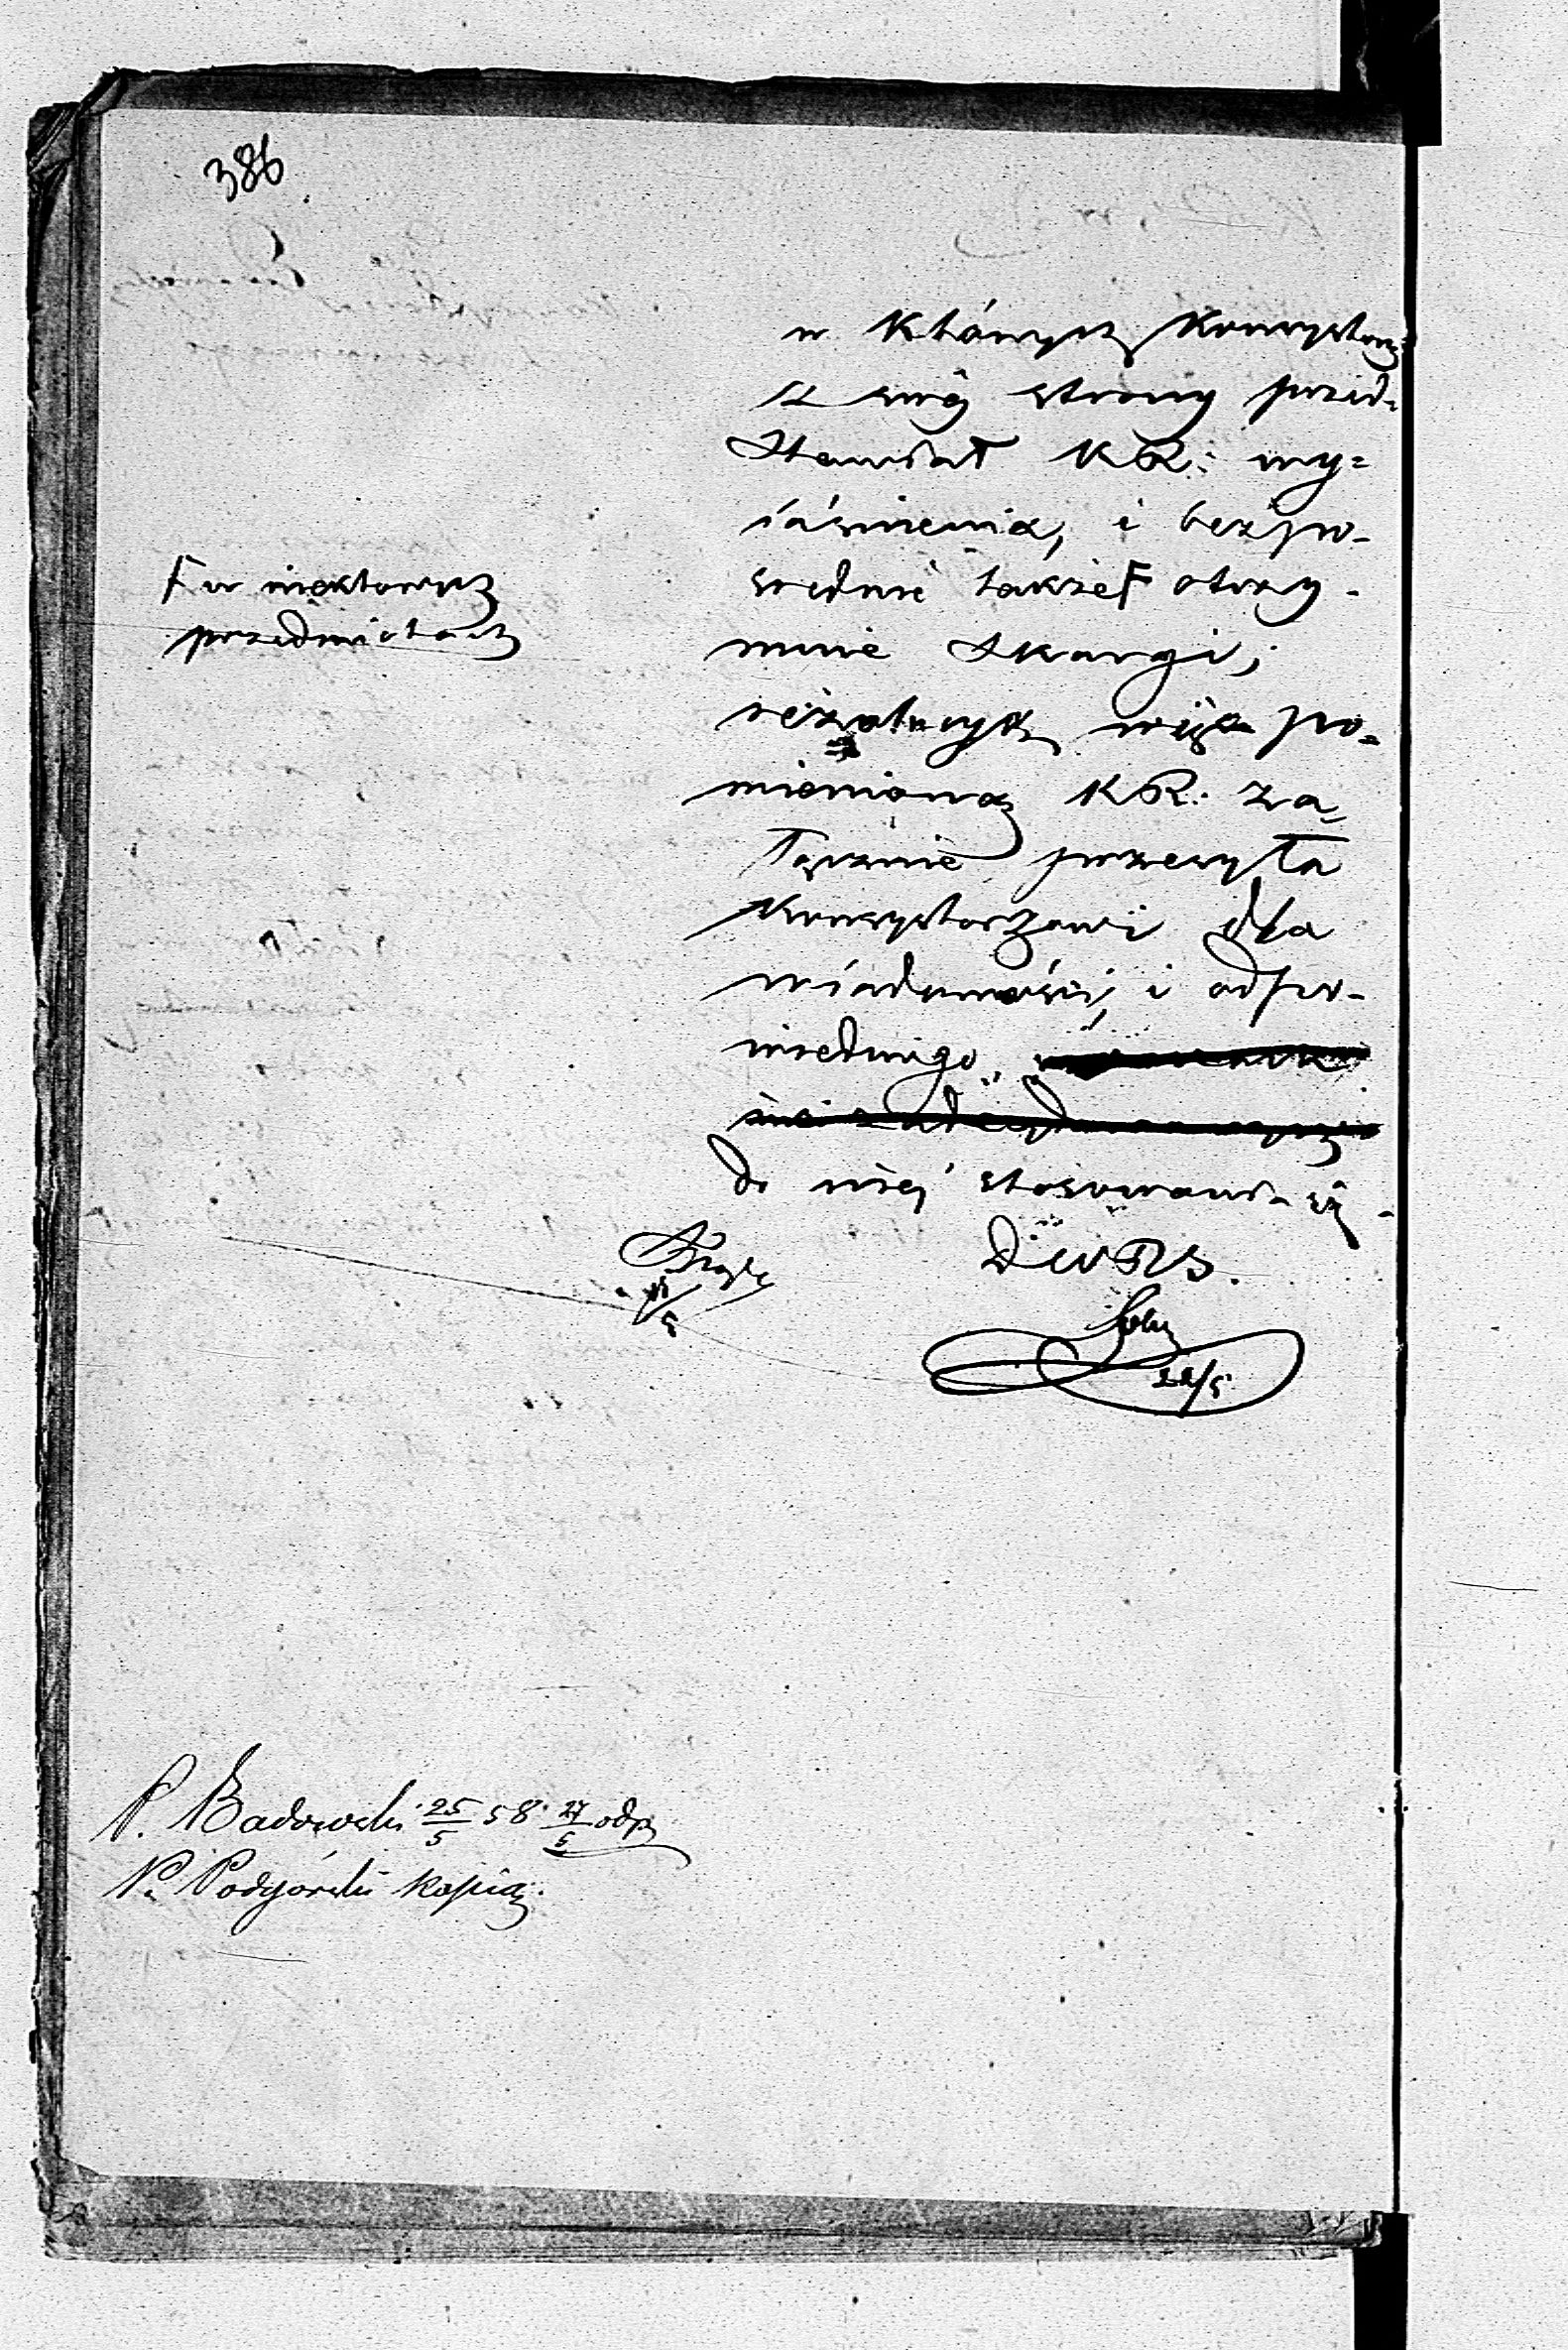 386
w których Konsystorz
z swéj strony przed-
stawiał KR: wy=
iaśnienia, i bezpo-
srednie takze F otrzy-
muie skargi;
więc po=
mienioną KR: za=
łącznie przesyła
Konsystorzowi dla
wiadomości, i odpo-
wiedniego
do niéj stosowania się.
F w niektorych
przedmiotach
D W R S.
22/5
P. Badowski 25/5 58 27/5 odp
P. Podgórski kopią.